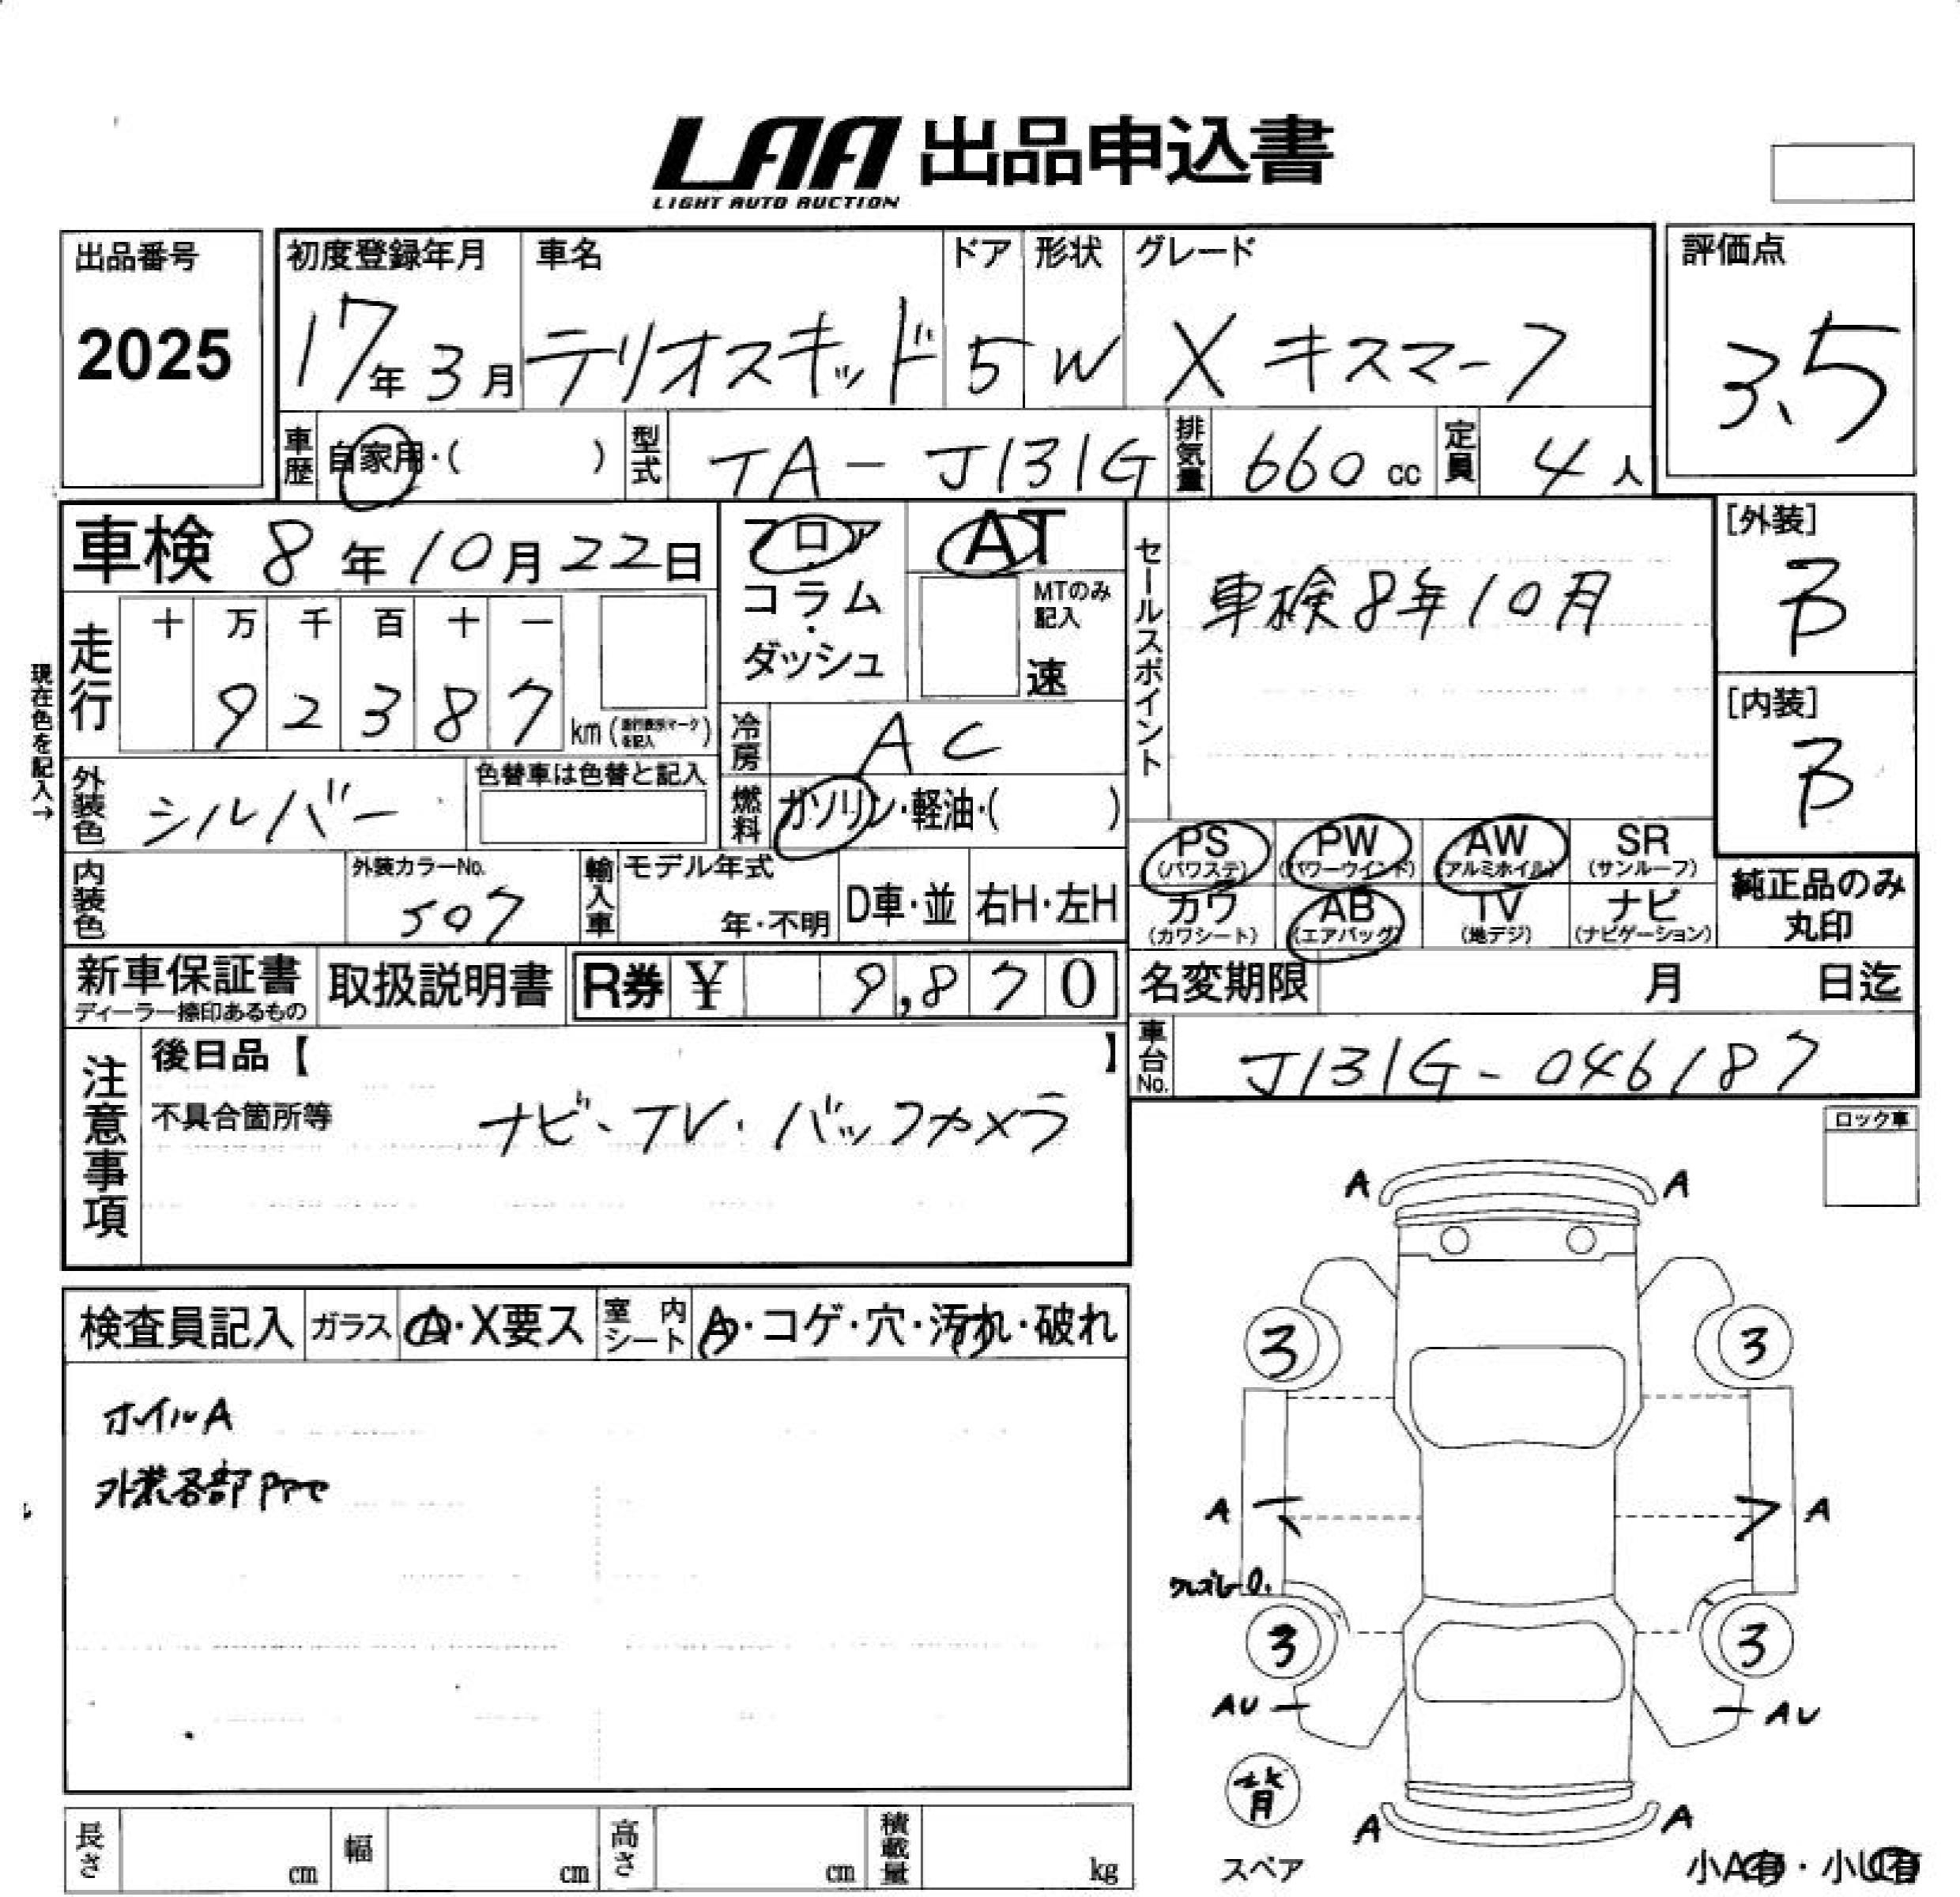 LAA 出品申込書
LIGHT AUTO AUCTION
出品番号
2025
初度登録年月
17年3月
車名
テリオスキッド
ドア
5
形状
W
グレード
X キスマーク
評価点
3.5
車歴
自家用・( )
型式
TA-J131G
排気量
660cc
定員
4人
車検 8年10月22日
フロア
コラム・ダッシュ
AT
MTのみ記入
速
セールスポイント
車検8年10月
[外装]
B
[内装]
B
現在色を記入→
走行
十 万 千 百 十 一
9 2 3 8 7
km(走行表示マークを記入)
冷房
AC
外装色
シルバー
色替車は色替と記入
燃料
ガソリン・軽油・( )
PS (パワステ)
PW (パワーウインド)
AW (アルミホイル)
SR (サンルーフ)
カワ (カワシート)
AB (エアバッグ)
TV (地デジ)
ナビ (ナビゲーション)
純正品のみ丸印
内装色
外装カラーNo.
507
輸入車
モデル年式
年・不明
D車・並
右H・左H
新車保証書
ディーラー捺印あるもの
取扱説明書
R券 ¥ 9,870
名変期限 月 日迄
車台No.
J131G-046187
注意事項
後日品【 】
不具合箇所等
ナビ・TV・バックカメラ
ロック車
検査員記入
ガラス
A・X要ス
室内シート
A・コゲ・穴・汚れ・破れ
ホイルA
外装各部
A A
3 3
A A
3 3
AU AU
背
スペア
A A
小A有・小U有
長さ cm
幅 cm
高さ cm
積載量 kg